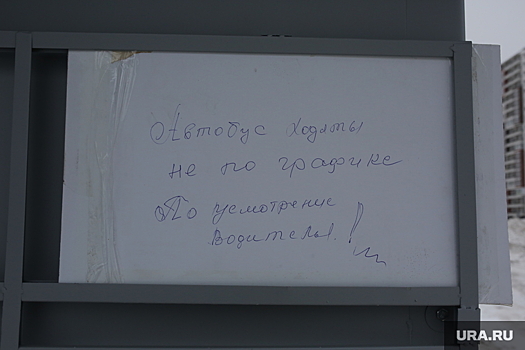 Автобус ходяты
не по графике
По усмотрение
водителы.!
URA.RU